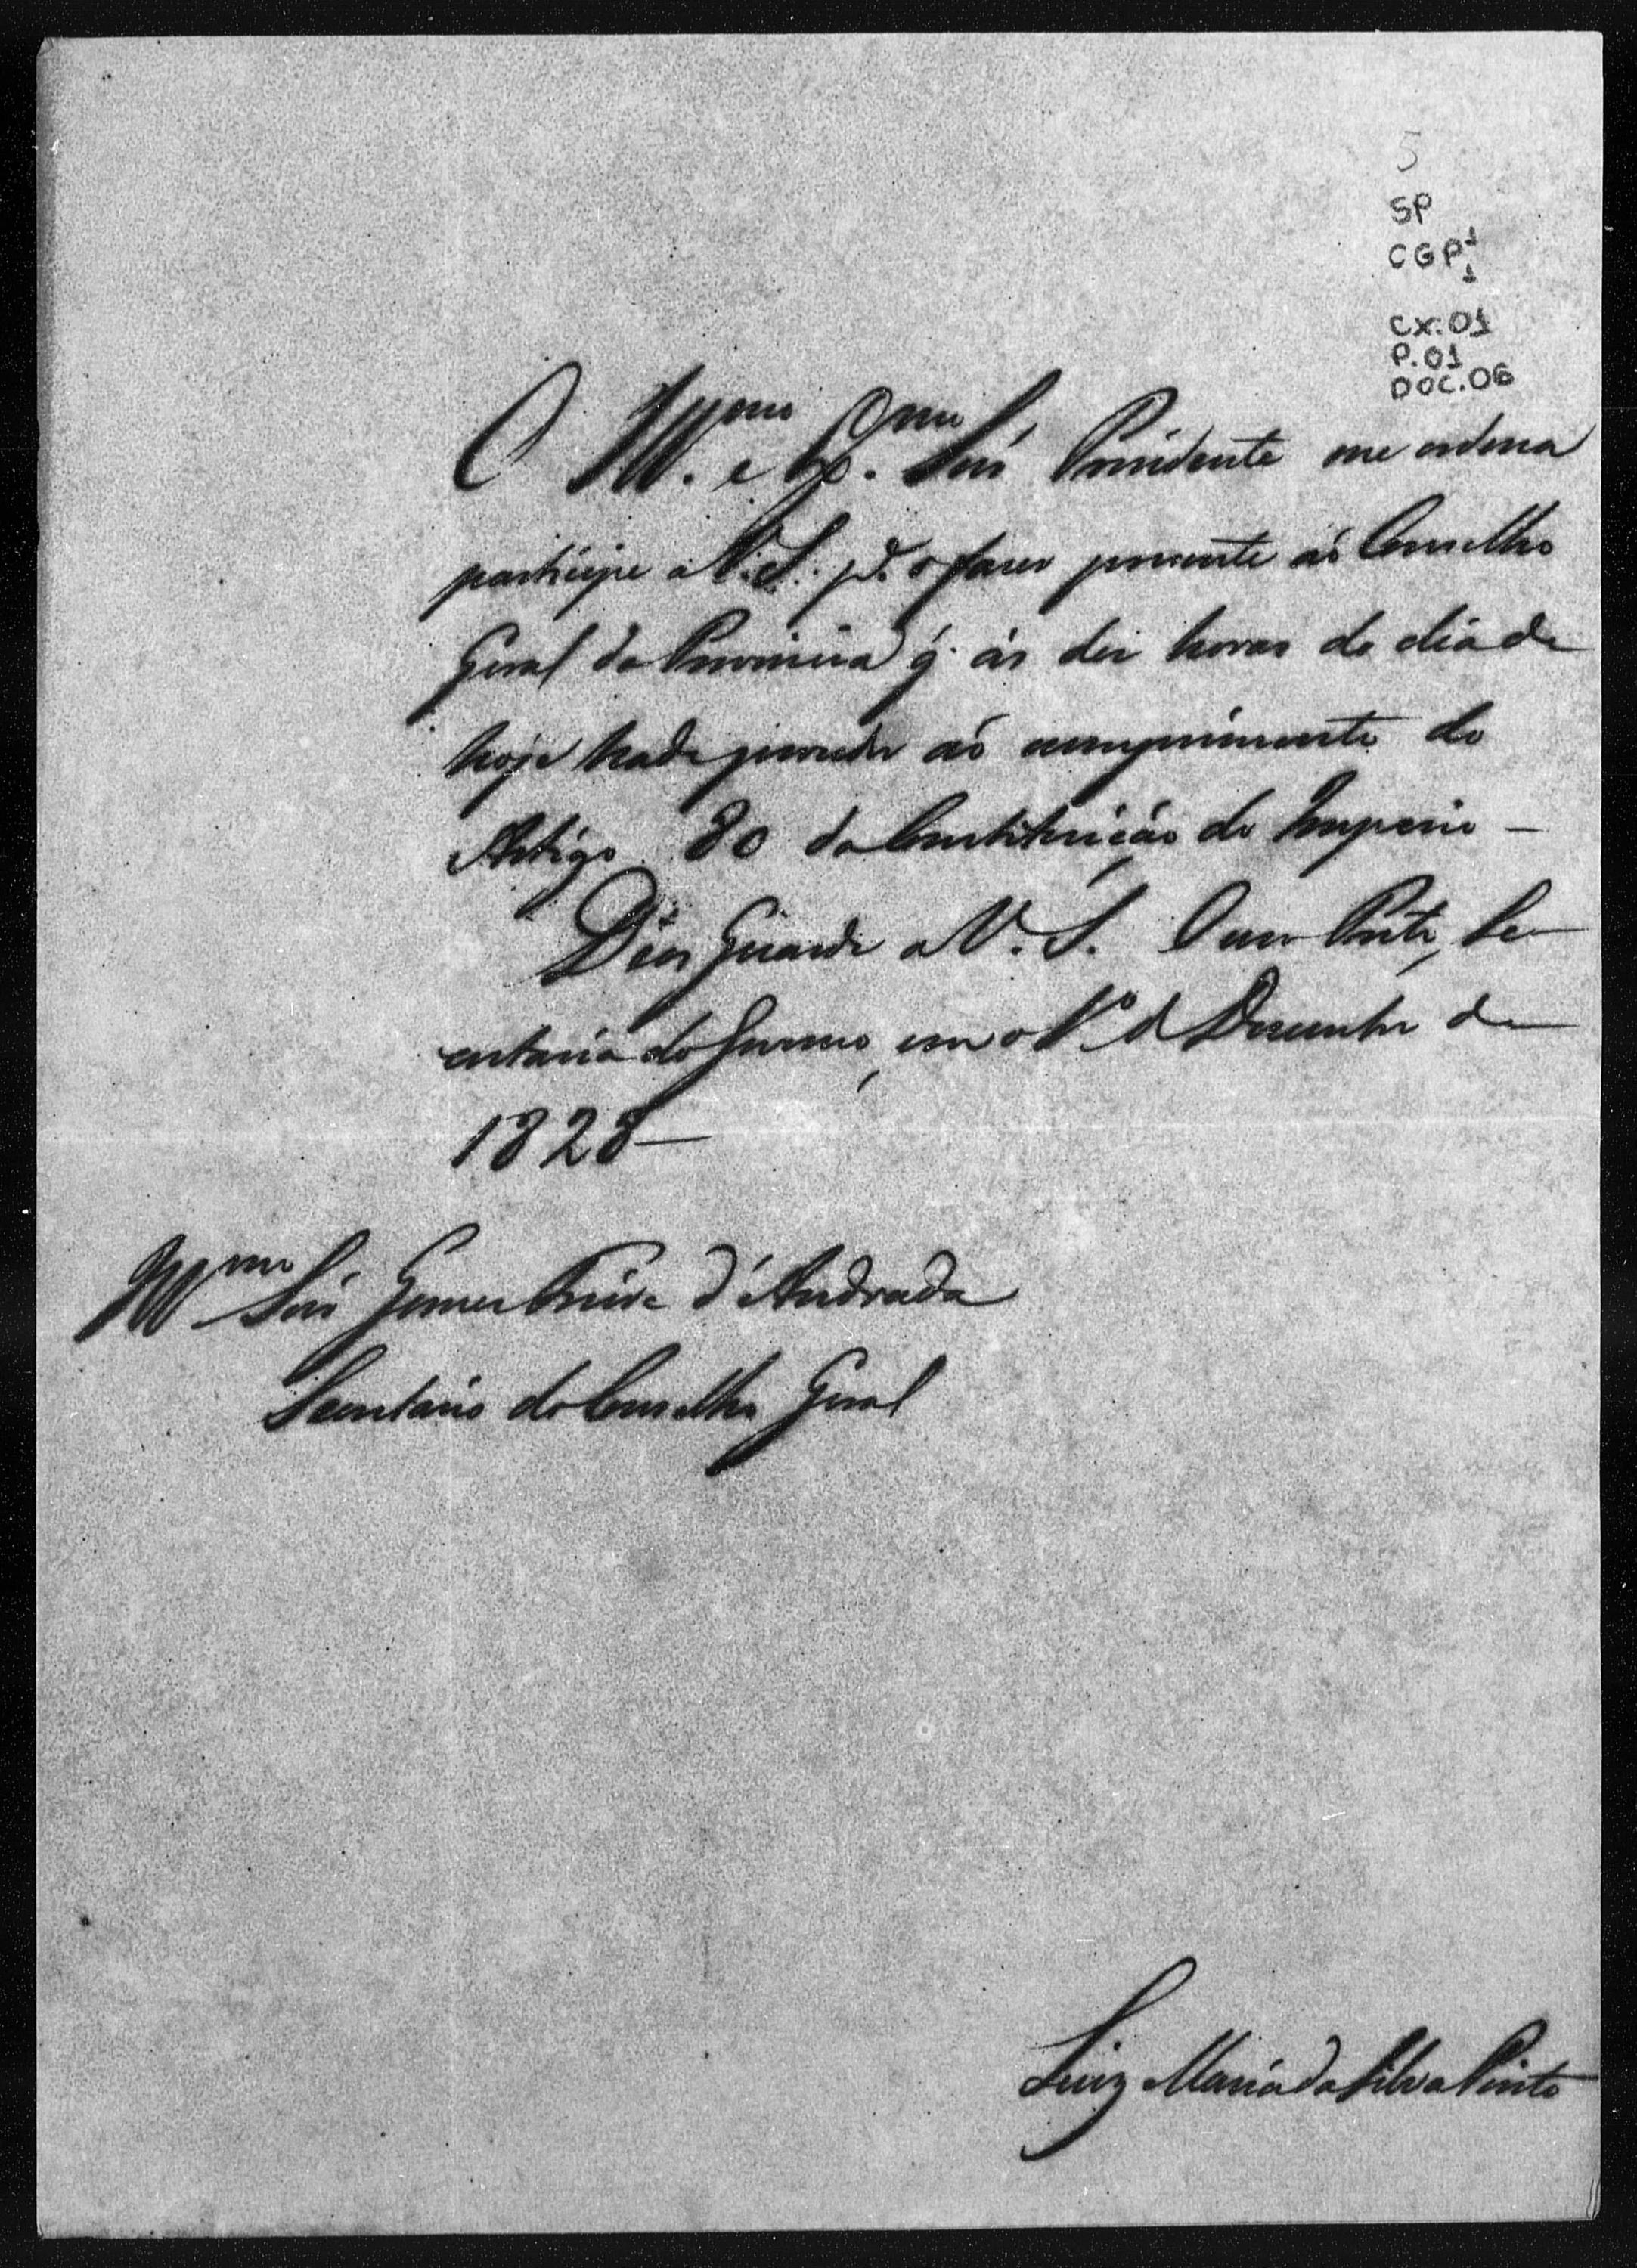 5
SP
CGP 1
1
CX: 01
P. 01
DOC. 06
O Ill.mo e Ex.mo Snr. Presidente me ordena
participe a V. S. pa. o fazer presente aó Conselho
Geral da Provincia q. ás dez horas do dia de
hoje hade proceder aó comprimento do
Artigo 80 da Constituição do Imperio –
Deos Guarde a V. S. Ouro Preto, Se-
cretaria do Governo, em o 1º de Dezembro de
1828 –
Ill.mo Snr. Gomes Freire d'Andrada
Secretario do Conselho Geral
Luiz Maria da Silva Pinto